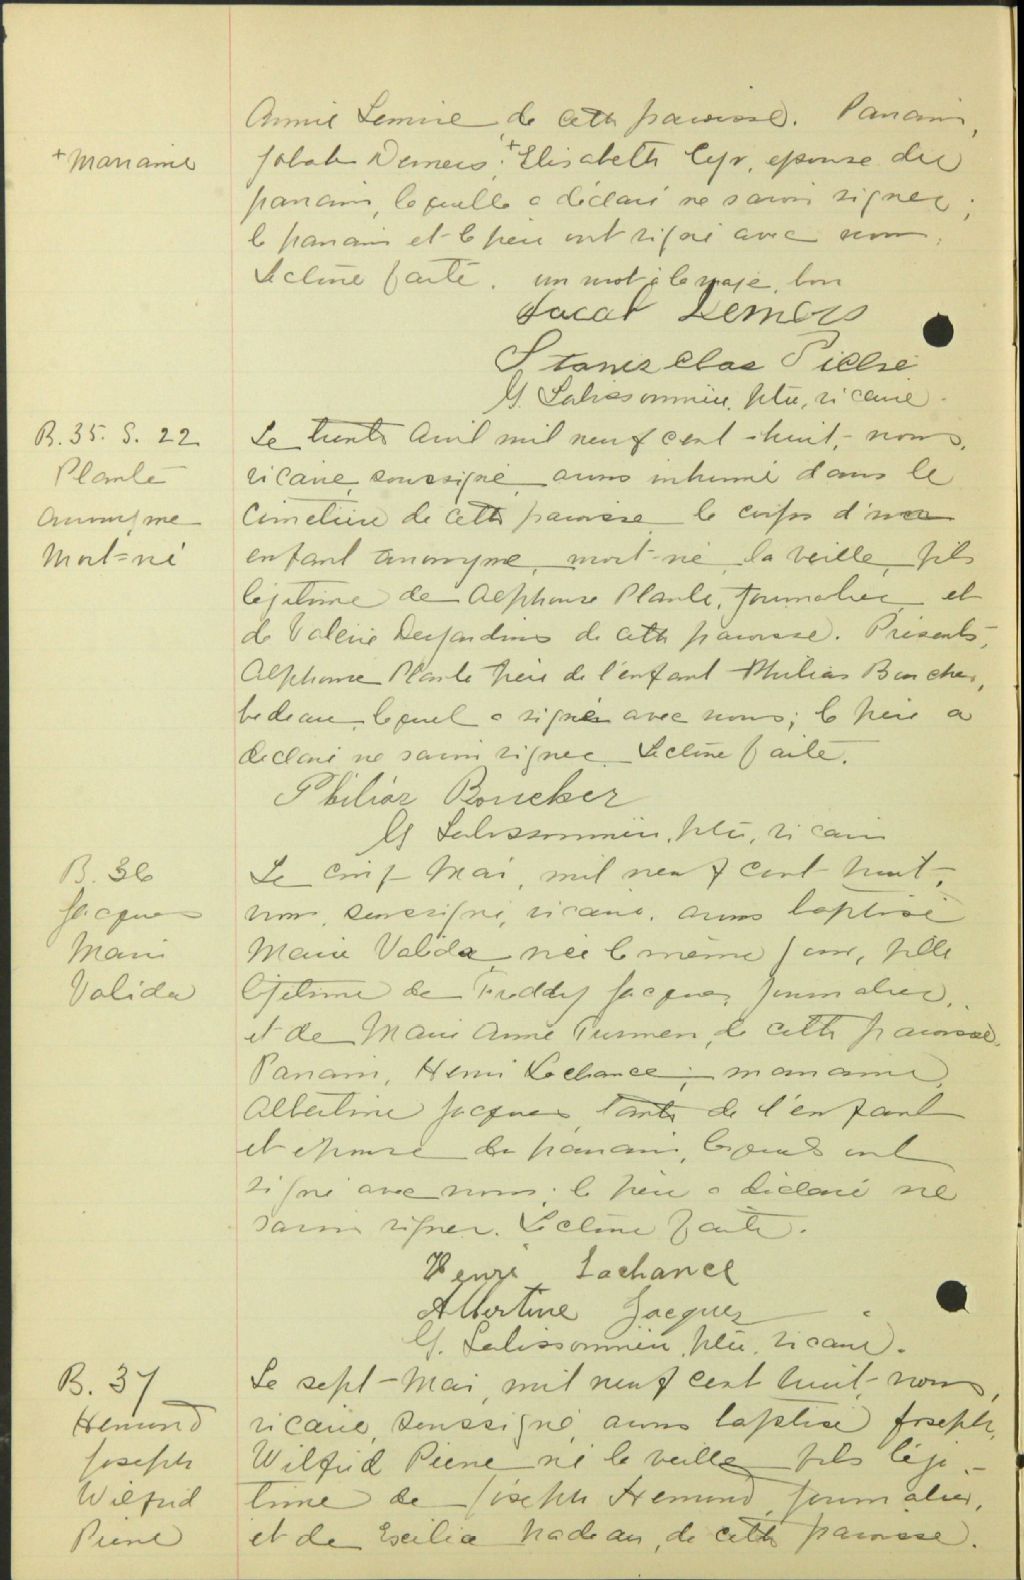 Annie Lemire de cette paroisse. Parrain,
+ marraine
Jakob Demers; + Elisabeth Cyr, épouse du
parrain, laquelle a déclaré ne savoir signer;
le parrain et le père ont signé avec nous.
Lecture faite. un mot à la marge, bon
Jacob Demers
Stanislas Piché
G. Lalissonnière, ptre, vicaire.
B. 35. S. 22
Plante
anonyme
Mort-né
Le trente Avril mil neuf cent-huit, nous,
vicaire soussigné avons inhumé dans le
cimetière de cette paroisse le corps d'un
enfant anonyme, mort-né la veille, fils
légitime de Alphonse Plante, journalier, et
de Valérie Desjardins de cette paroisse. Présents,
Alphonse Plante père de l'enfant Philias Boucher,
bedeau, lequel a signé avec nous; le père a
déclaré ne savoir signer. Lecture faite.
Philias Boucher
G Lalissonnière, ptre, vicaire
B. 36
Jacques
Marie
Valida
Le cinq Mai, mil neuf cent huit,
nous, soussigné, vicaire, avons baptisé
Marie Valida, née le même jour, fille
légitime de Freddy Jacques, journalier,
et de Marie Anne Turmen, de cette paroisse.
Parrain, Henri Lachance; marraine,
Albertine Jacques tante de l'enfant
et épouse du parrain, lesquels ont
signé avec nous; le père a déclaré ne
savoir signer. Lecture faite.
Henri Lachance
Albertine Jacques
G. Lalissonnière, ptre, vicaire.
B. 37
Hemond
Joseph
Wilfrid
Pierre
Le sept-Mai, mil neuf cent huit, nous,
vicaire, soussigné, avons baptisé Joseph,
Wilfrid Pierre né la veille fils légi-
time de Joseph Hemond, journalier,
et de Exilia Nadeau, de cette paroisse.